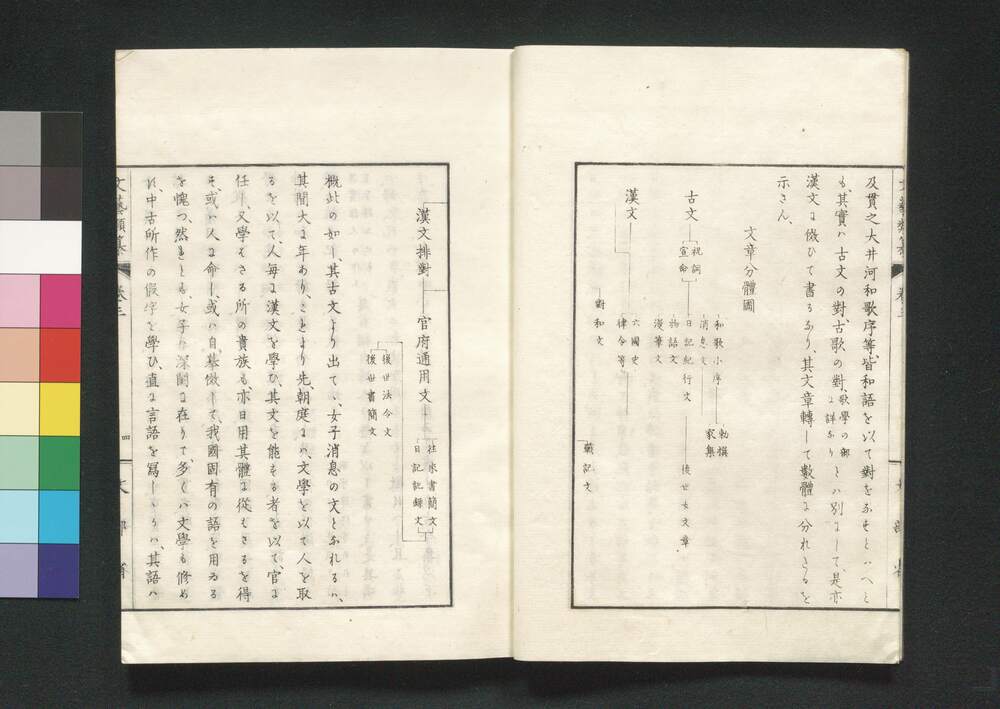 及貫之大井河和歌序等、皆和語を以て對をなせとハへと
も、其實ハ古文の對、古歌の對、歌學の部に詳なり とハ別よして、是亦
漢文に倣ひて書るなり、其文章轉して數體に分れさるを
示さん、
文章分體圖
和歌小序
勅撰
家集
消息文
古文
祝詞
宣命
日記紀行文
後世女文章
物語文
漫筆文
漢文
六國史
律令等
對和文
戰記文
漢文排對
官府通用文
往來書簡文
日記記録文
後世法令文
後世書簡文
概此の如し、其古文より出て、女子消息の文となれるハ、
其間大に年あり、これより先、朝庭にハ、文學を以て人を取
るを以て、人毎に漢文を學び、其文を能する者を以て、官に
任し、又學はさる所の貴族も、亦日用其體に從はさるを得
す、或ハ人に命し、或ハ自摹倣して、我國固有の語を用ゐる
を愧つ、然れとも、女子ハ深閨に在りて、多くハ文學も修め
す、中古所作の假字を學ひ、直に言語を寫し
ハ、其語ハ
文藝類纂
卷三
四